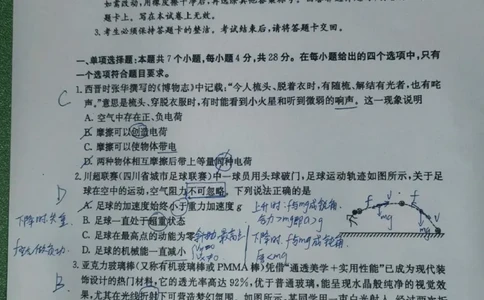 如需改动,用橡皮擦干净后,再选涂其他答案标号。
题卡上。写在本试卷上无效。
3.考生必须保持答题卡的整洁。考试结束后,请将答题卡交回。
一、单项选择题:本题共7个小题,每小题4分,共28分。在每小题给出的四个选项中,只有
一个选项符合题目要求。
C
1.西晋时张华撰写的《博物志》中记载:“今人梳头、脱着衣时,有随梳、解结有光者,也有咤
声。”意思是梳头、穿脱衣服时,有时能看到小火星和听到微弱的响声。这一现象说明
A.空气中存在正、负电荷
B.摩擦可以创造电荷
C.摩擦可以使物体带电
D.两种物体相互摩擦后带上等量同种电荷
D
2.川超联赛(四川省城市足球联赛)中一球员用头球破门,足球运动轨迹如图所示,关于足
球在空中的运动,空气阻力不可忽略,下列说法正确的是
A.足球的加速度始终小于重力加速度g
B.足球一直处于超重状态
C.足球在最高点的动能为零
D.足球的机械能一直减小
上升时:f与mg成锐角
合力>mg即a>g
下降时:f与mg成钝角
下降时失重
B
3.亚克力玻璃棒(又称有机玻璃棒或PMMA棒)凭借“通透美学+实用性能”已成为现代装
饰设计的热门材料,它的透光率高达92%,优于普通玻璃,能呈现水晶般纯净的视觉效
果,尤其在光线折射下可营造梦幻氛围。如图所示,某同学用一束白光射人